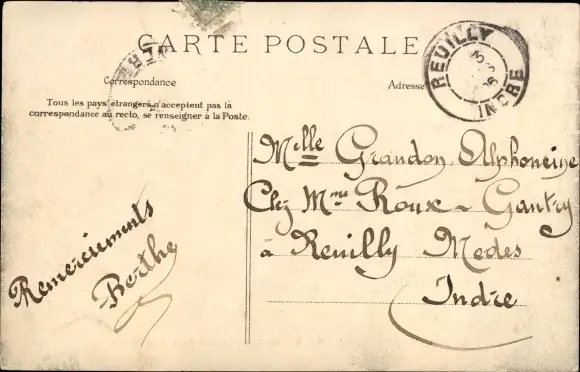 CARTE POSTALE
Correspondance
Adresse
Tous les pays étrangers n'acceptent pas la
correspondance au recto, se renseigner à la Poste.
REUILLY
INDRE
Mlle Grandon Alphonsine
Chez Mme Roux - Gantry
à Reuilly Medes
Indre
Remerciements
Berthe